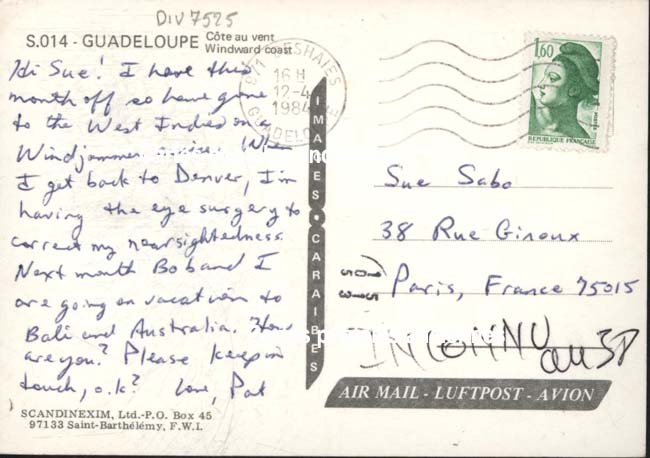 DIV 7525
S.014 - GUADELOUPE
Côte au vent
Windward coast
Hi Sue! I have this
month off so have gone
to the West Indies on a
Windjammer cruise. When
I get back to Denver, I'm
having the eye surgery to
correct my nearsightedness.
Next month Bob and I
are going on vacation to
Bali and Australia. How
are you? Please keep in
touch, o.k? Love, Pat
SCANDINEXIM, Ltd.-P.O. Box 45
97133 Saint-Barthélémy, F.W.I.
IMAGES CARAIBES
971 DESHAIES
16 H
12-4
1984
GUADELOUPE
1,60
REPUBLIQUE FRANÇAISE
Sue Sabo
38 Rue Giroux
Paris, France 75015
INCONNU
au 38
AIR MAIL - LUFTPOST - AVION